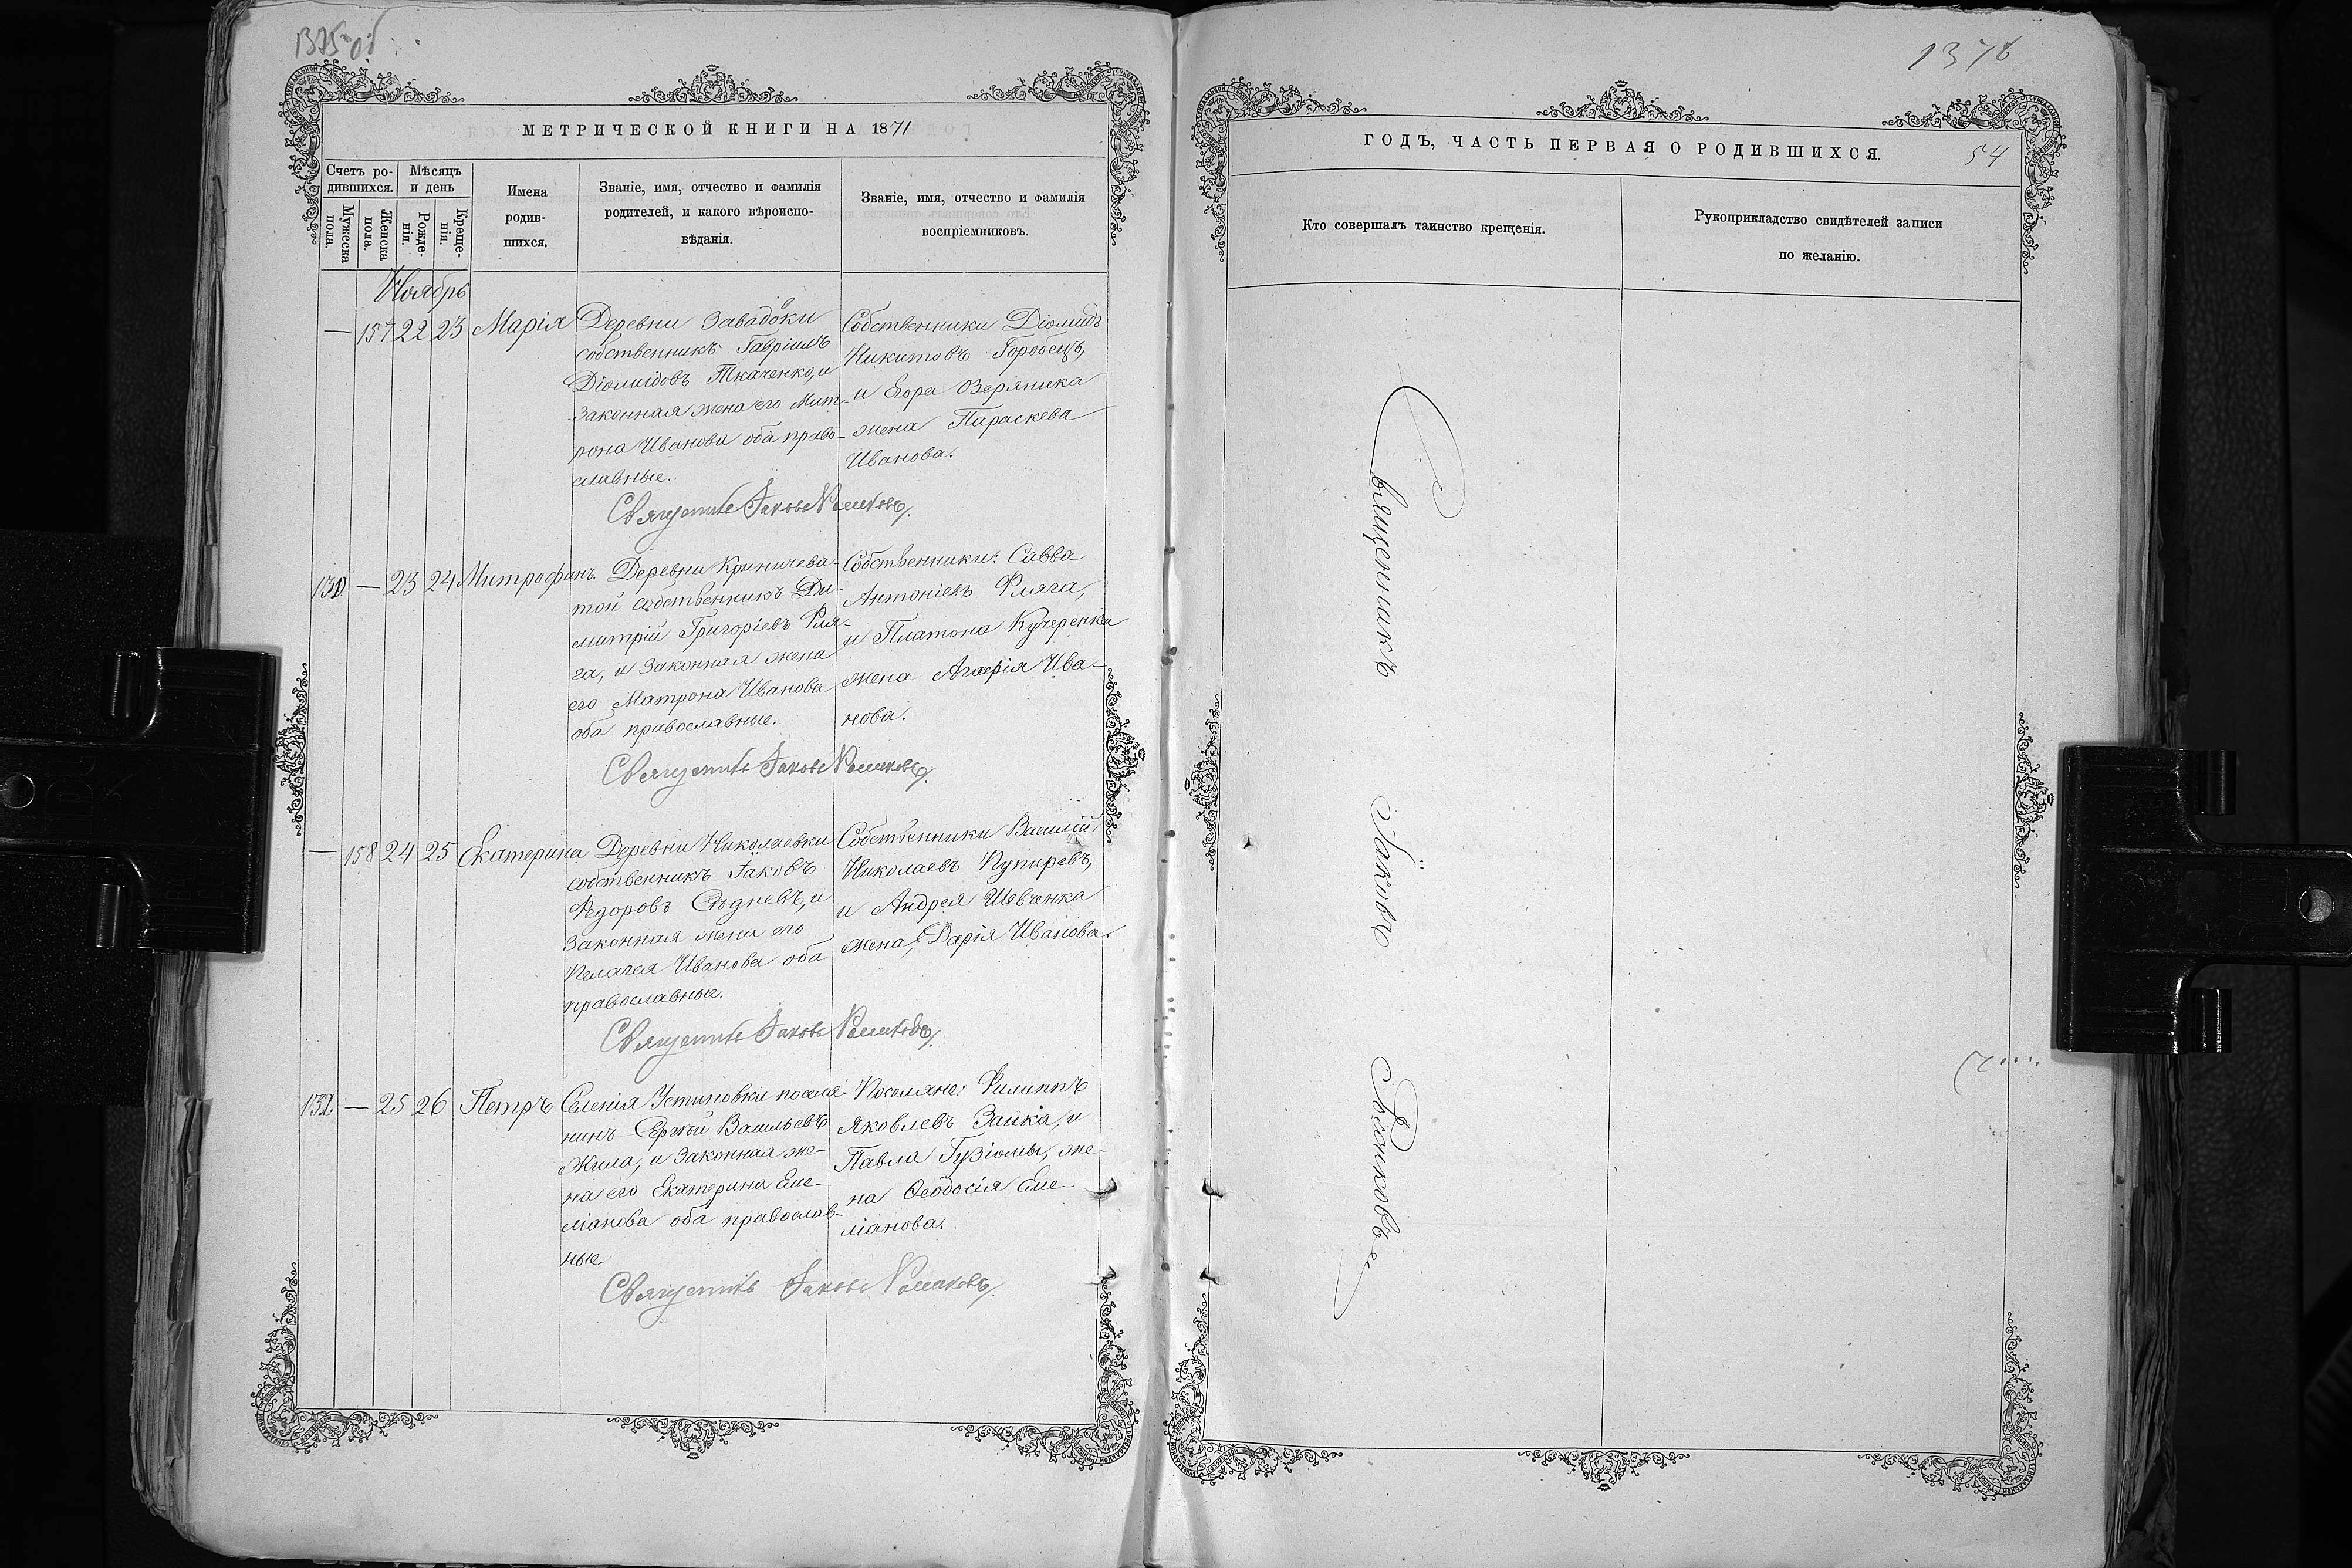 1375 об
МЕТРИЧЕСКОЙ КНИГИ НА 1871
Счетъ ро-
дившихся.
Мужеска
пола.
Женска
пола.
Мѣсяцъ
и день
Рожде-
нія.
Креще-
нія.
Имена
родив-
шихся.
Званіе, имя, отчество и фамилія
родителей, и какого вѣроиспо-
вѣданія.
Званіе, имя, отчество и фамилія
воспріемниковъ.
Ноябрь
— 157 22 23 Марія
Деревни Завадовки
собственникъ Гавріилъ
Діомидовъ Ткаченко, и
законная жена его Мат-
рона Иванова оба право-
славные.
Собственники Діомидъ
Никитовъ Горобецъ,
и Егора Озеряника
жена Параскева
Иванова.
Священникъ Іаковъ
130 — 23 24 Митрофанъ.
Деревни Криничева-
той собственникъ Ди-
митрій Григоріевъ Фля-
га, и законная жена
его Матрона Иванова
оба православные.
Собственники: Савва
Антоніевъ Фляга,
и Платона Кучеренка
жена Агафія Ива-
нова.
Священникъ Іаковъ
— 158 24 25 Екатерина
Деревни Николаевки
собственникъ Іаковъ
Федоровъ Сѣдневъ, и
законная жена его
Пелагея Иванова оба
православные.
Собственники Василій
Николаевъ Пупыревъ,
и Андрея Шевченка
жена, Дарія Иванова.
Священникъ Іаковъ
131. — 25 26 Петръ
Селенія Устиновки поселя-
нинъ Сергѣй Васильевъ
Жила, и законная же-
на его Екатерина Еме-
ліанова оба православ-
ные.
Поселяне: Филиппъ
Яковлевъ Заика, и
Павла Гузіомы, же-
на Ѳеодосія Еме-
ліанова.
Священникъ Іаковъ
1376
ГОДЪ, ЧАСТЬ ПЕРВАЯ О РОДИВШИХСЯ.
54
Кто совершалъ таинство крещенія.
Рукоприкладство свидѣтелей записи
по желанію.
Священникъ Іаковъ